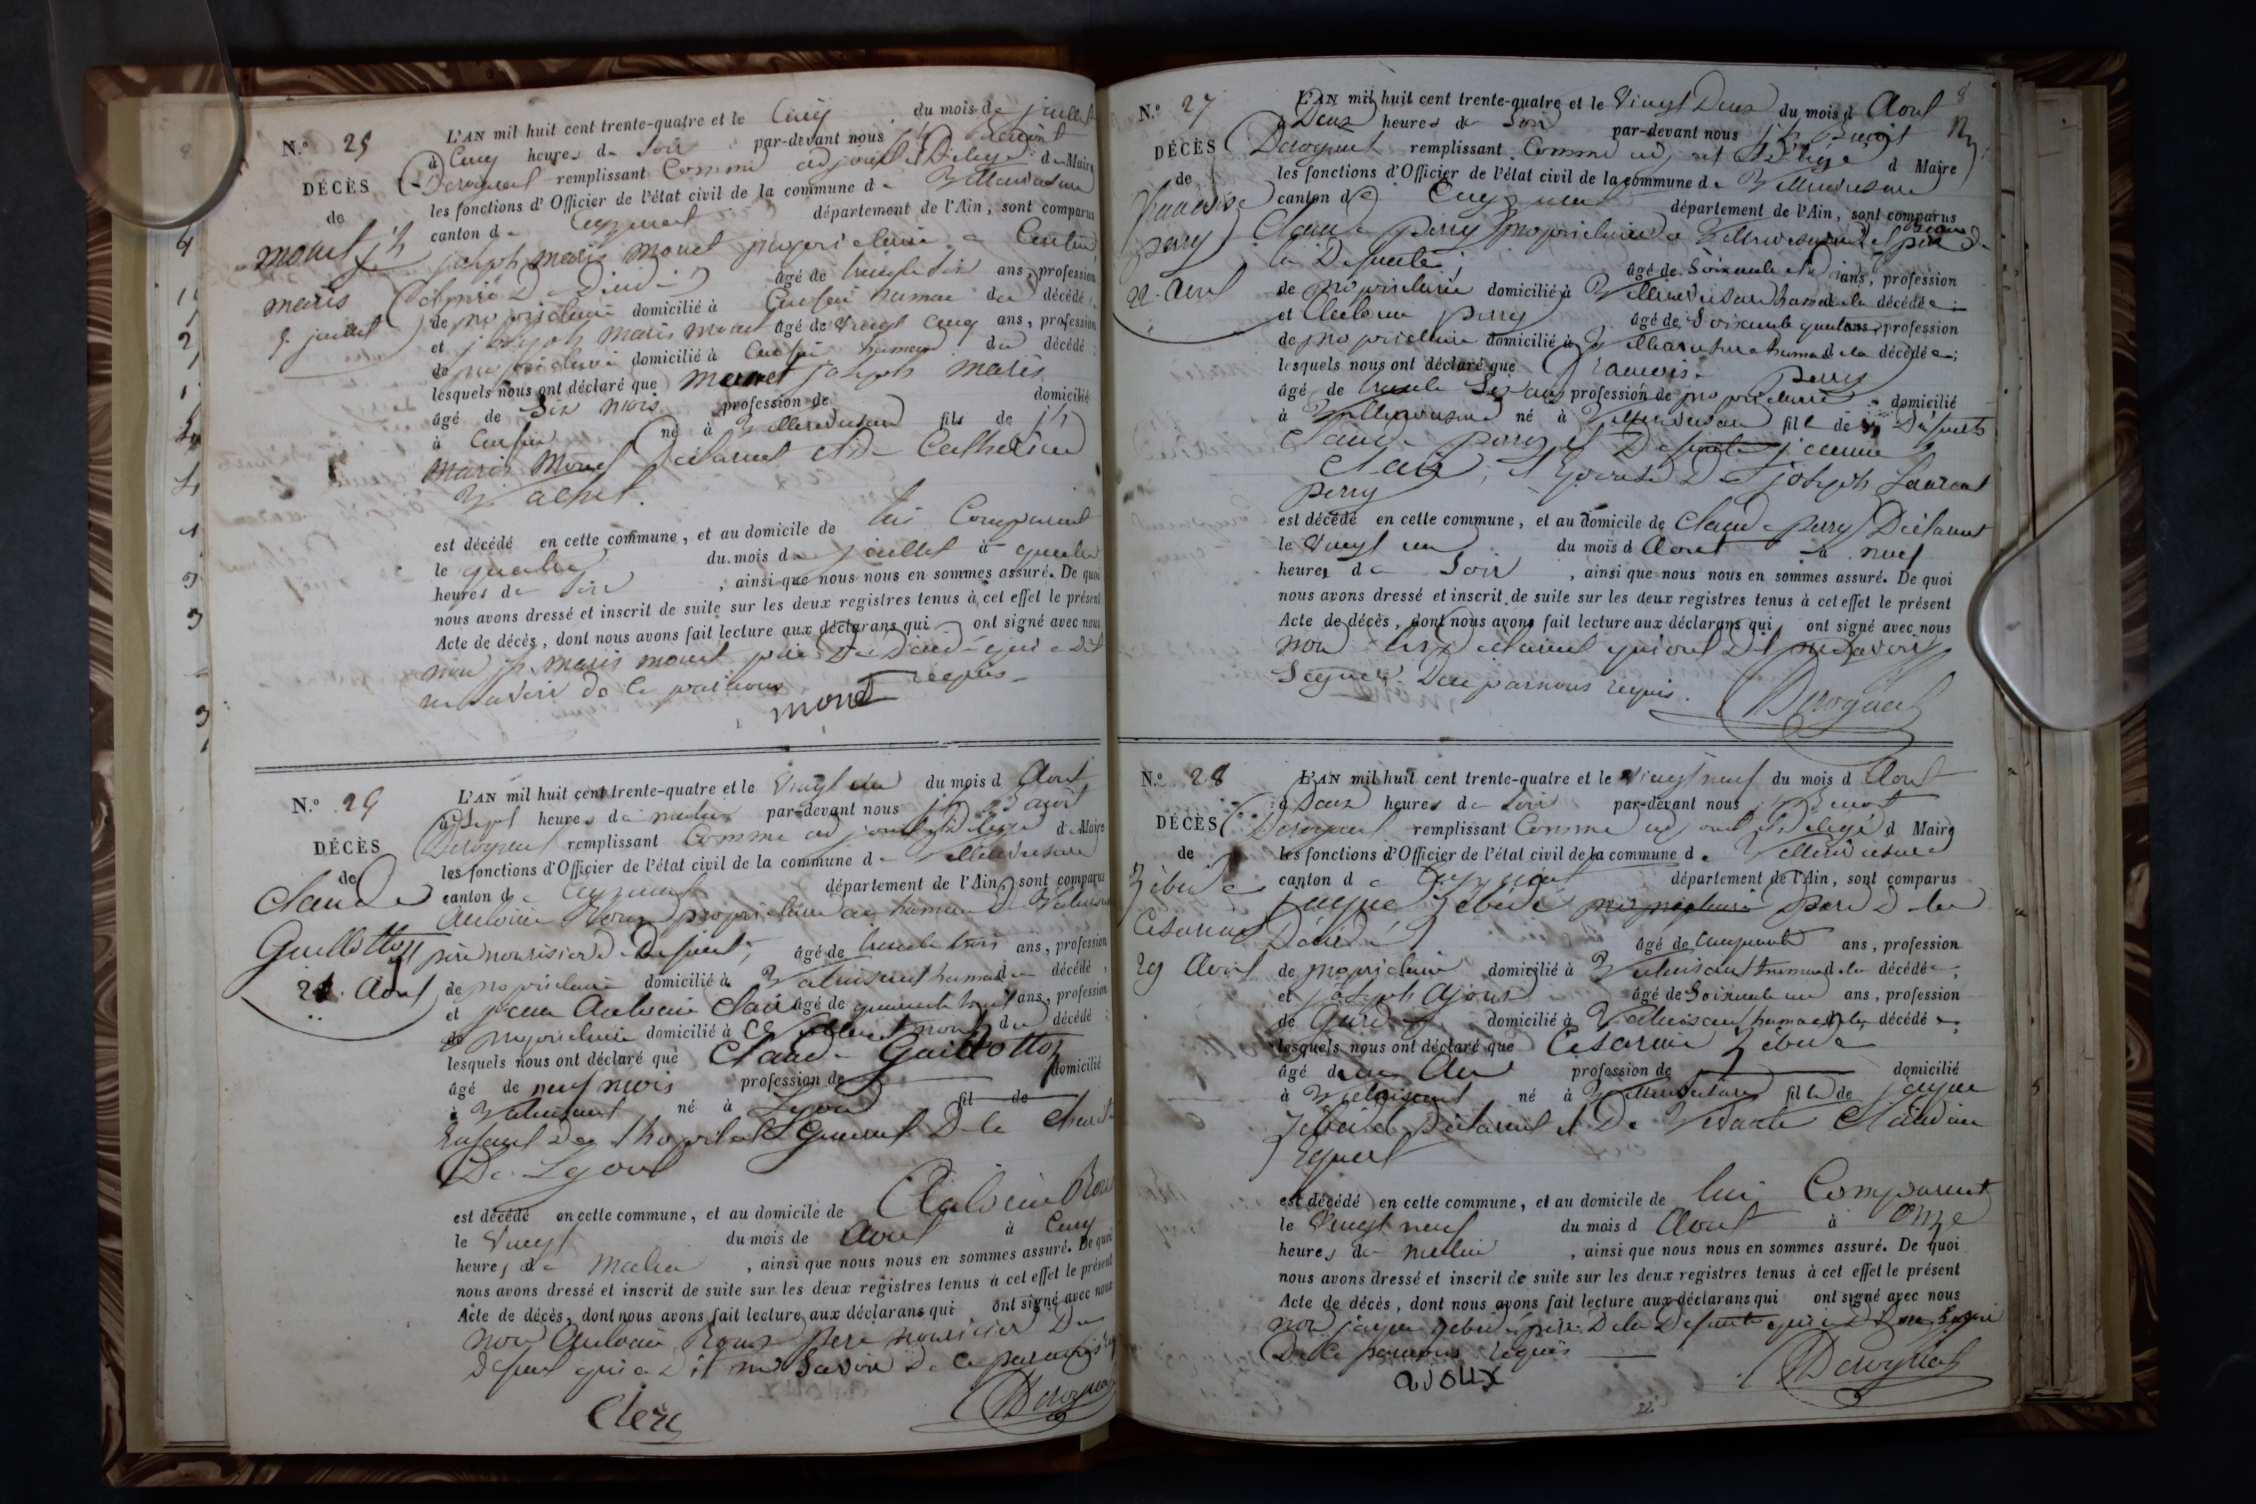 N.o 25
DÉCÈS
de
mouet jh
marie
5 juillet
L'AN mil huit cent trente-quatre et le Cinq du mois de juillet
à Cinq heures de Soir par-devant nous jh Benoit
Derognat remplissant Comme adjoint Délégé de Maire
les fonctions d'Officier de l'état civil de la commune de Villereversure
canton de Ceyzeriat département de l'Ain, sont comparus
joseph marie mouet propriétaire a
âgé de trente six ans, profession
de propriétaire domicilié à hameau du décédé
et joseph marie mouet âgé de vingt cinq ans, profession
de propriétaire domicilié à hameau du décédé ;
lesquels nous ont déclaré que mouet joseph marie
âgé de Six mois profession de domicilié
à né à Villereversure fils de jh
marie mouet Déclarant et de Catherine
est décédé en cette commune, et au domicile de lui Comparant
le quatre du mois de juillet à quatre
heures de Soir , ainsi que nous nous en sommes assuré. De quoi
nous avons dressé et inscrit de suite sur les deux registres tenus à cet effet le présent
Acte de décès, dont nous avons fait lecture aux déclarans qui ont signé avec nous
non jh marie mouet père du Décédé qui a Dit
ne savoir de ce par nous requis
mouet
N.o 26
DÉCÈS
de
Claude
Guillotton
21. Aout
L'AN mil huit cent trente-quatre et le Vingt un du mois d Aout
à Sept heures de matin par-devant nous jh Benoit
Derognat remplissant Comme adjoint Délégé de Maire
les fonctions d'Officier de l'état civil de la commune de Villereversure
canton de Ceyzeriat département de l'Ain, sont comparus
Antoine Roux propriétaire au hameau de
père nourisier de Defunt, âgé de trente trois ans, profession
de propriétaire domicilié à hameau du décédé ,
et jean Antoine Clair âgé de quarante huit ans, profession
de propriétaire domicilié à du décédé ;
lesquels nous ont déclaré que Claude Guillotton
âgé de neuf mois profession de domicilié
à né à Lyon fil de
Enfant de l'hopital General De la Charité
De Lyon
est décédé en cette commune, et au domicile de Antoine Roux
le Vingt du mois de Aout à Cinq
heures de Matin , ainsi que nous nous en sommes assuré. De quoi
nous avons dressé et inscrit de suite sur les deux registres tenus à cet effet le présent
Acte de décès, dont nous avons fait lecture aux déclarans qui ont signé avec nous
non Antoine Roux père nourisier Du
Defunt qui a Dit ne Savoir de ce par nous
Clerc
Derognat
8
N.o 27
DÉCÈS
de
Francoise
perry
22. Aout
L'AN mil huit cent trente-quatre et le Vingt Deux du mois d Aout
à Deux heures de Soir par-devant nous jh Benoit
Derognat remplissant Comme adjoint Délégé d Maire
les fonctions d'Officier de l'état civil de la commune de Villereversure
canton de Ceyzeriat département de l'Ain, sont comparus
Claude perry propriétaire a Villereversure
la Defunte, âgé de Soixante ans, profession
de propriétaire domicilié à Villereversure hameau de la décédée ;
et perry âgé de Soixante quatre ans, profession
de propriétaire domicilié à Villereversure hameau de la décédée ;
lesquels nous ont déclaré que Francoise perry
âgé de trente Six ans profession de propriétaire domicilié
à Villereversure né à Villereversure fille de Défunts
Claude perry et Defunte jeanne
Clair, Epouse De joseph Laurent
perry
est décédé en cette commune, et au domicile de Claude perry Déclarant
le Vingt un du mois d Aout à neuf
heures de Soir , ainsi que nous nous en sommes assuré. De quoi
nous avons dressé et inscrit de suite sur les deux registres tenus à cet effet le présent
Acte de décès, dont nous avons fait lecture aux déclarans qui ont signé avec nous
non les Déclarant qui ont Dit ne Savoir
Signer De ce par nous requis.
Derognat
N.o 28
DÉCÈS
de
Zébédé
Césarine
29 Aout
L'AN mil huit cent trente-quatre et le Vingt neuf du mois d Aout
à Deux heures de Soir par-devant nous jh Benoit
Derognat remplissant Comme adjoint Délégé d Maire
les fonctions d'Officier de l'état civil de la commune de Villereversure
canton de Ceyzeriat département de l'Ain, sont comparus
jaque Zébédé propriétaire père de la
Décédé âgé de Cinquante ans, profession
de propriétaire domicilié à hameau de la décédée ;
et joseph Ajoux âgé de Soixante un ans, profession
de Garde domicilié à hameau de la décédée ;
lesquels nous ont déclaré que Césarine Zébédé
âgé de un An profession de domicilié
à né à Villereversure fille de jaque
Zébédé Déclarant et De Claudine
est décédé en cette commune, et au domicile de lui Comparant
le Vingt neuf du mois d Aout à Onze
heures de matin , ainsi que nous nous en sommes assuré. De quoi
nous avons dressé et inscrit de suite sur les deux registres tenus à cet effet le présent
Acte de décès, dont nous avons fait lecture aux déclarans qui ont signé avec nous
non jaque Zébédé père De la Defunte qui a Dit ne Savoir
De ce par nous requis
ajoux
Derognat